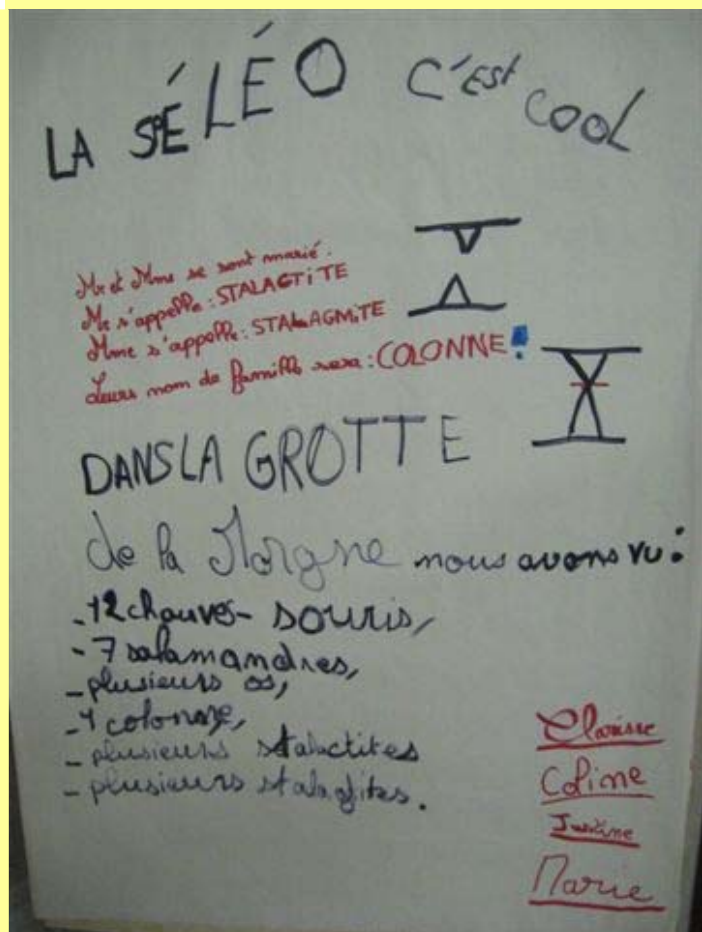 LA SPÉLÉO C'EST COOL
Mr et Mme se sont marié.
Mr s'appelle : STALACTITE
Mme s'appelle : STALAGMITE
Leurs nom de famille sera : COLONNE !
DANS LA GROTTE
de la Morgne nous avons vu :
- 12 chauves-souris,
- 7 salamandres,
- plusieurs os,
- 1 colonne,
- plusieurs stalactites
- plusieurs stalagfites.
Clarisse
Coline
Justine
Marie